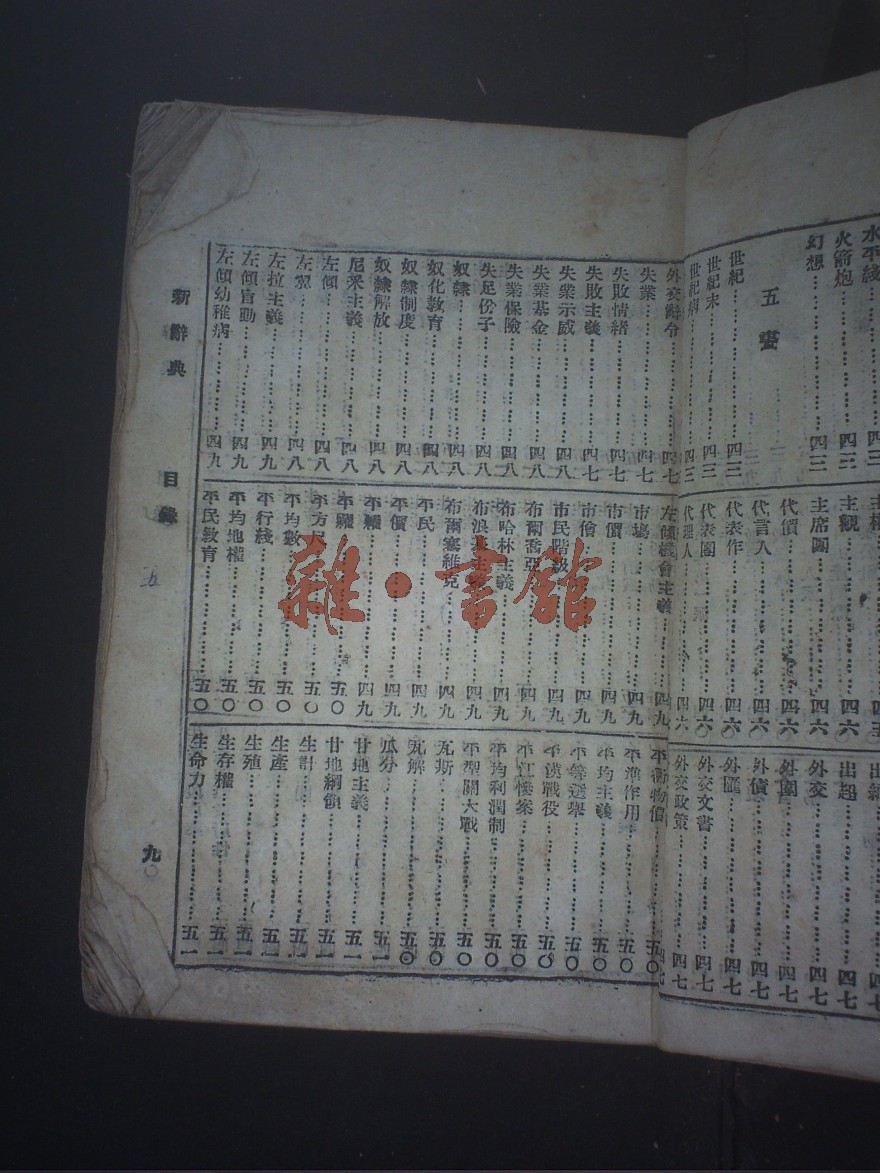 水平綫……四三
火箭炮……四三
幻想……四三
五畫
世紀……四三
世紀末……四三
世紀病……四三
主觀……四六
主席團……四六
代價……四六
代言人……四六
代表作……四六
代表團……四六
代理人……四六
出超……四七
外交……四七
外圍……四七
外債……四七
外匯……四七
外交文書……四七
外交政策……四七
外交辭令……四七
失業……四七
失敗情緒……四七
失敗主義……四七
失業示威……四八
失業基金……四八
失業保險……四八
失足份子……四八
奴隸……四八
奴化教育……四八
奴隸制度……四八
奴隸解放……四八
尼采主義……四八
左傾……四八
左翼……四八
左拉主義……四九
左傾盲動……四九
左傾幼稚病……四九
左傾機會主義……四九
市場……四九
市價……四九
市儈……四九
市民階級……四九
布爾喬亞……四九
布哈林主義……四九
布浪基主義……四九
布爾塞維克……四九
平民……四九
平價……四九
平權……四九
平糶……五〇
平方尺……五〇
平均數……五〇
平行綫……五〇
平均地權……五〇
平民敎育……五〇
平衡物價……五〇
平準作用……五〇
平均主義……五〇
平等選舉……五〇
平漢戰役……五〇
平江慘案……五〇
平均利潤制……五〇
平型關大戰……五〇
瓦斯……五〇
瓦解……五〇
瓜分……五一
甘地主義……五一
甘地綱領……五一
生計……五一
生產……五一
生殖……五一
生存權……五一
生命力……五一
新辭典
目錄
九
雜·書館